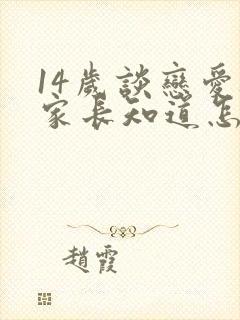 14歲談戀愛
家長知道怎
趙霞